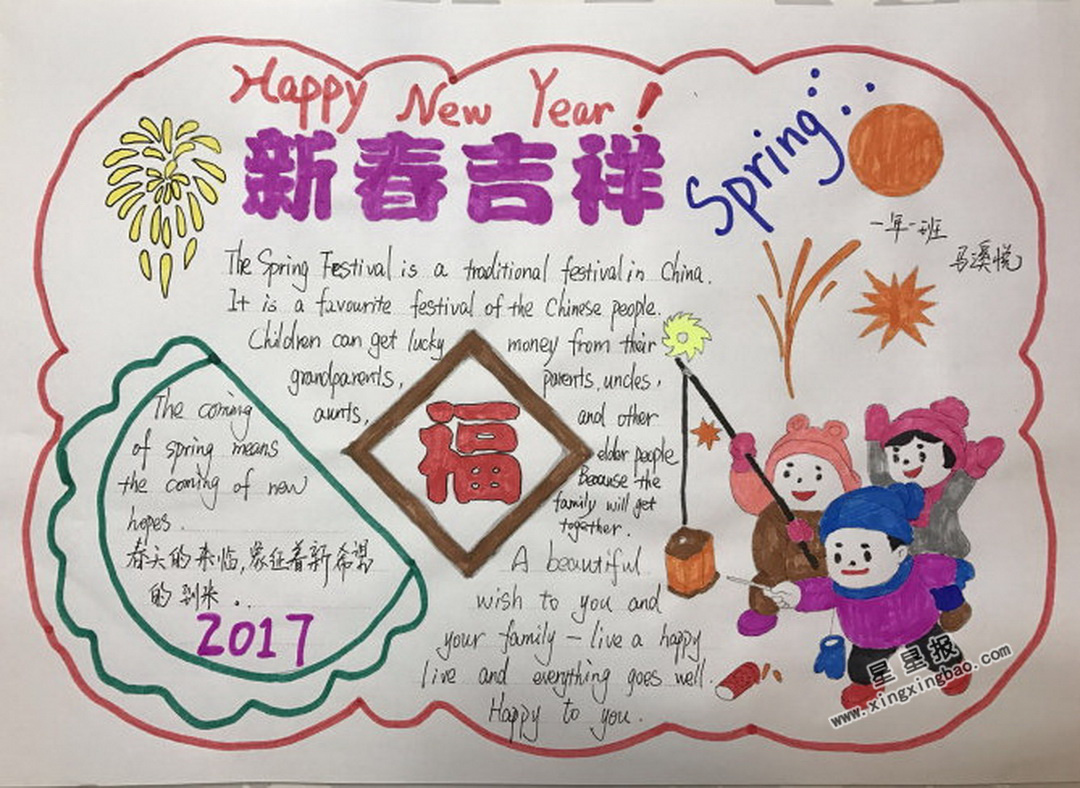 Happy New Year!
新春吉祥
Spring
一年一班
马溪悦
The Spring Festival is a traditional festival in China.
It is a favourite festival of the Chinese people.
Children can get lucky money from their
grandparents, parents, uncles,
aunts, and other
elder people
Because the
family will get
together.
福
The coming
of spring means
the coming of new
hopes.
春天的来临,象征着新希望
的到来..
2017
A beautiful
wish to you and
your family - live a happy
live and everything goes well.
Happy to you.
星星报
www.xingxingbao.com